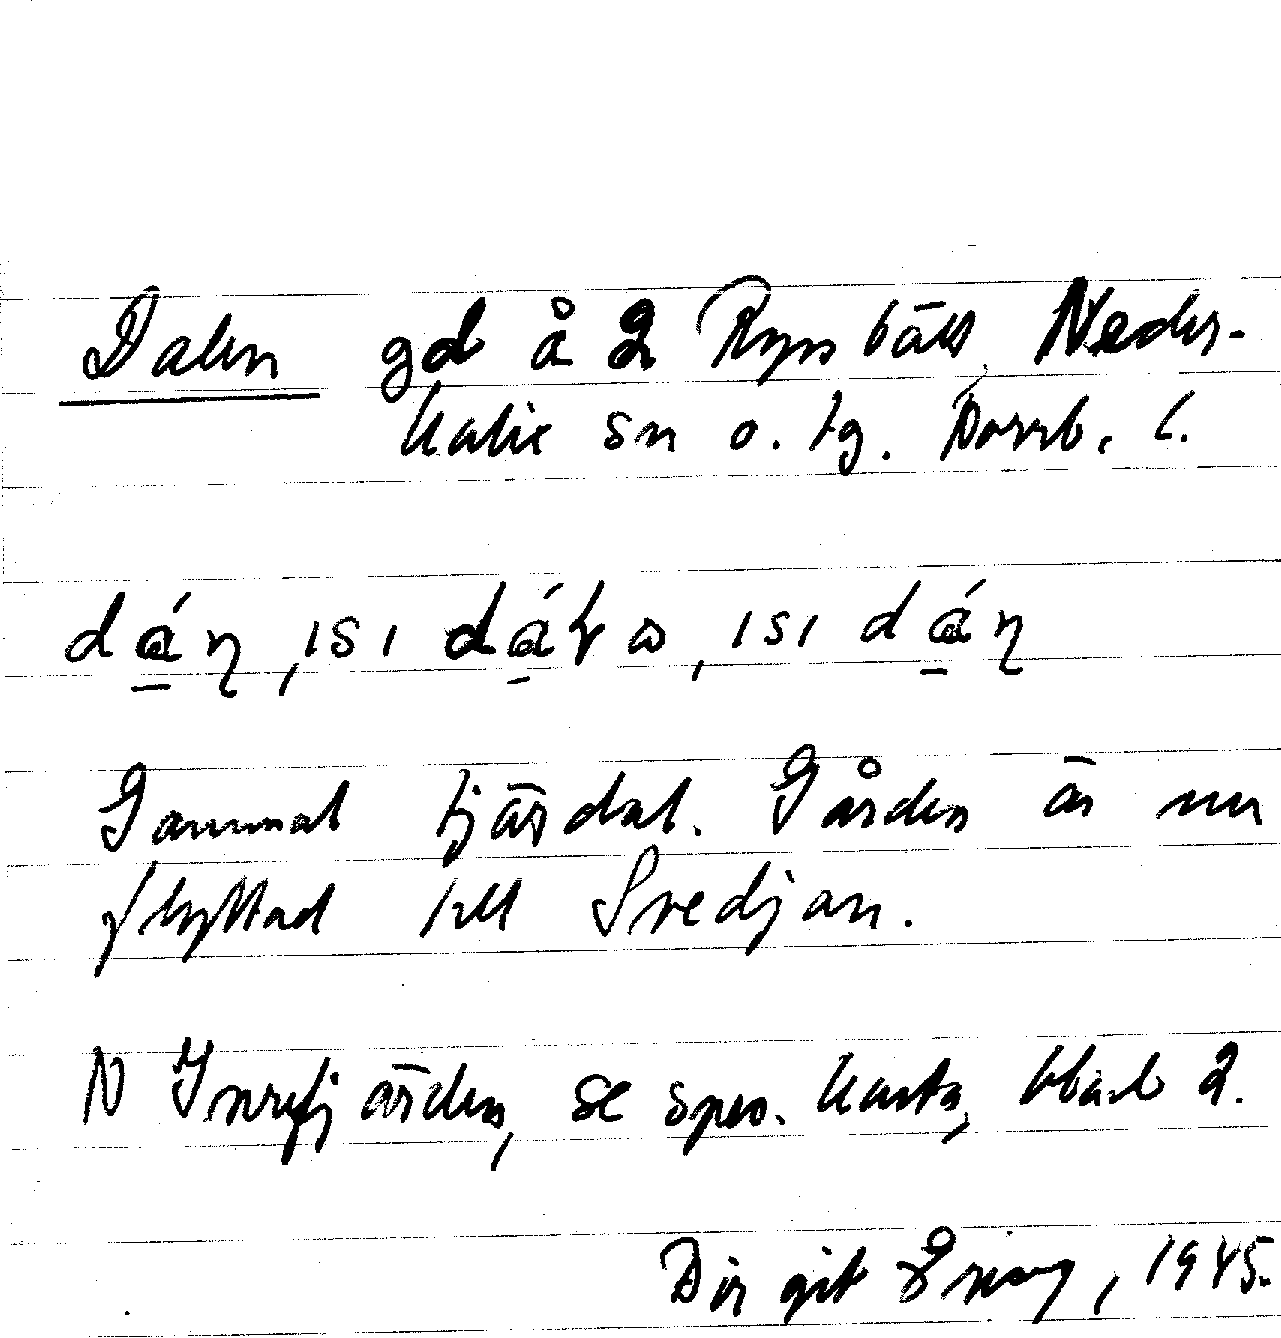 Dalen gd å 2 Ryssbält, Neder-
kalix sn o. tg. Norrb. l.
dá̱ɳ, ısı dá̱ , ısı dá̱ɳ
Gammal tjärdal. Gården är nu
flyttad till Svedjan.
N Inrefjärden, se spec. karta, blad 2.
Birgit , 1945.